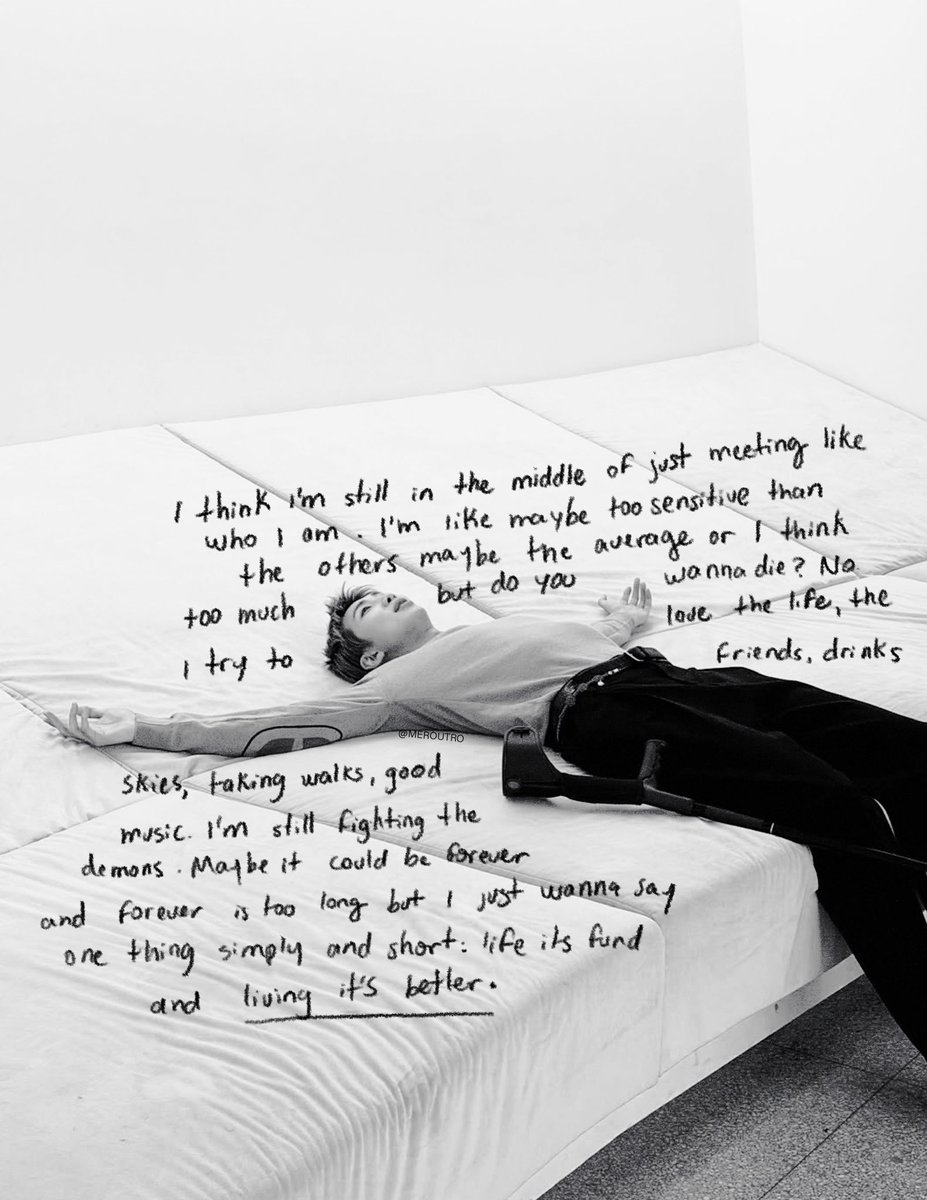 I think i'm still in the middle of just meeting like
who I am. I'm like maybe too sensitive than
the others maybe the average or I think
too much but do you wanna die? No
I try to love the life, the
friends, drinks
@MEROUTRO
skies, taking walks, good
music. I'm still fighting the
demons. Maybe it could be forever
and forever is too long but I just wanna say
one thing simply and short: life its fund
and living it's better.